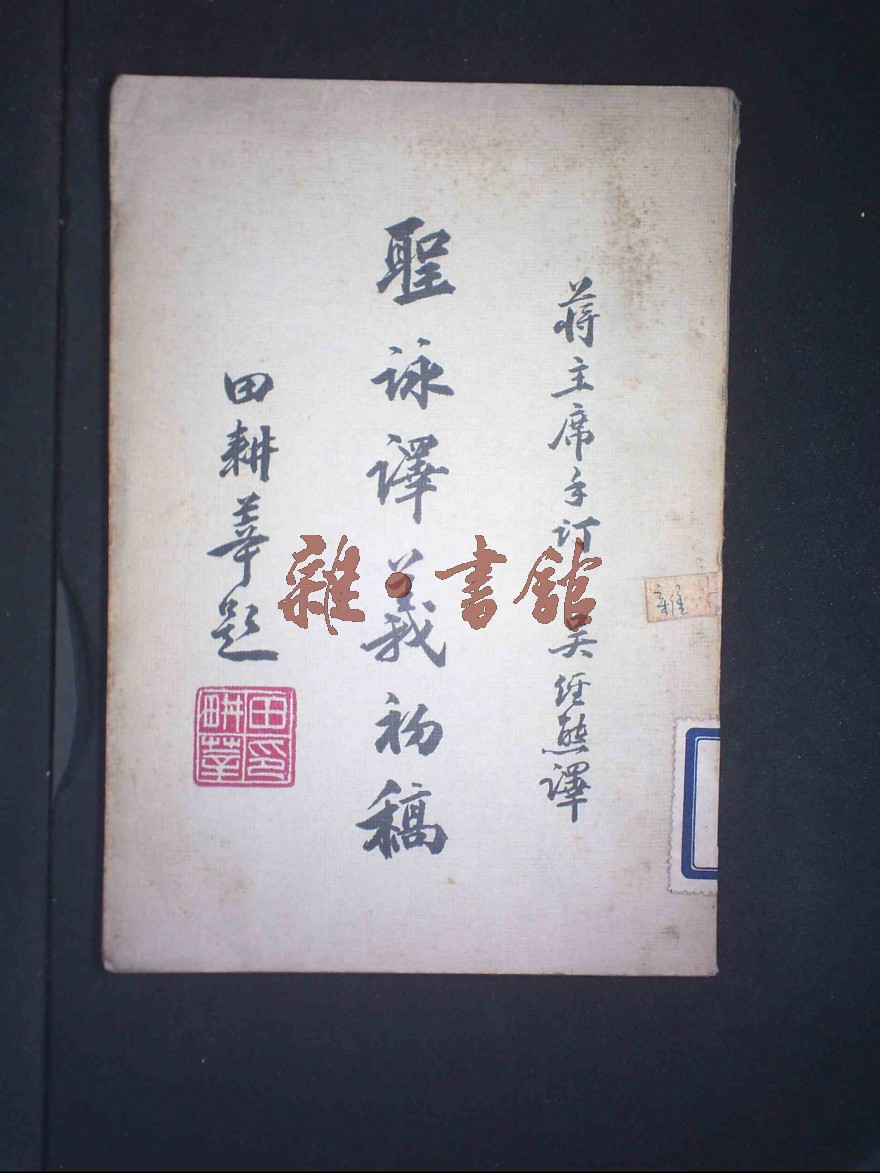 蔣主席手訂 吳經熊譯
聖詠譯義初稿
田耕莘題
田耕莘印
雜
雜·書館